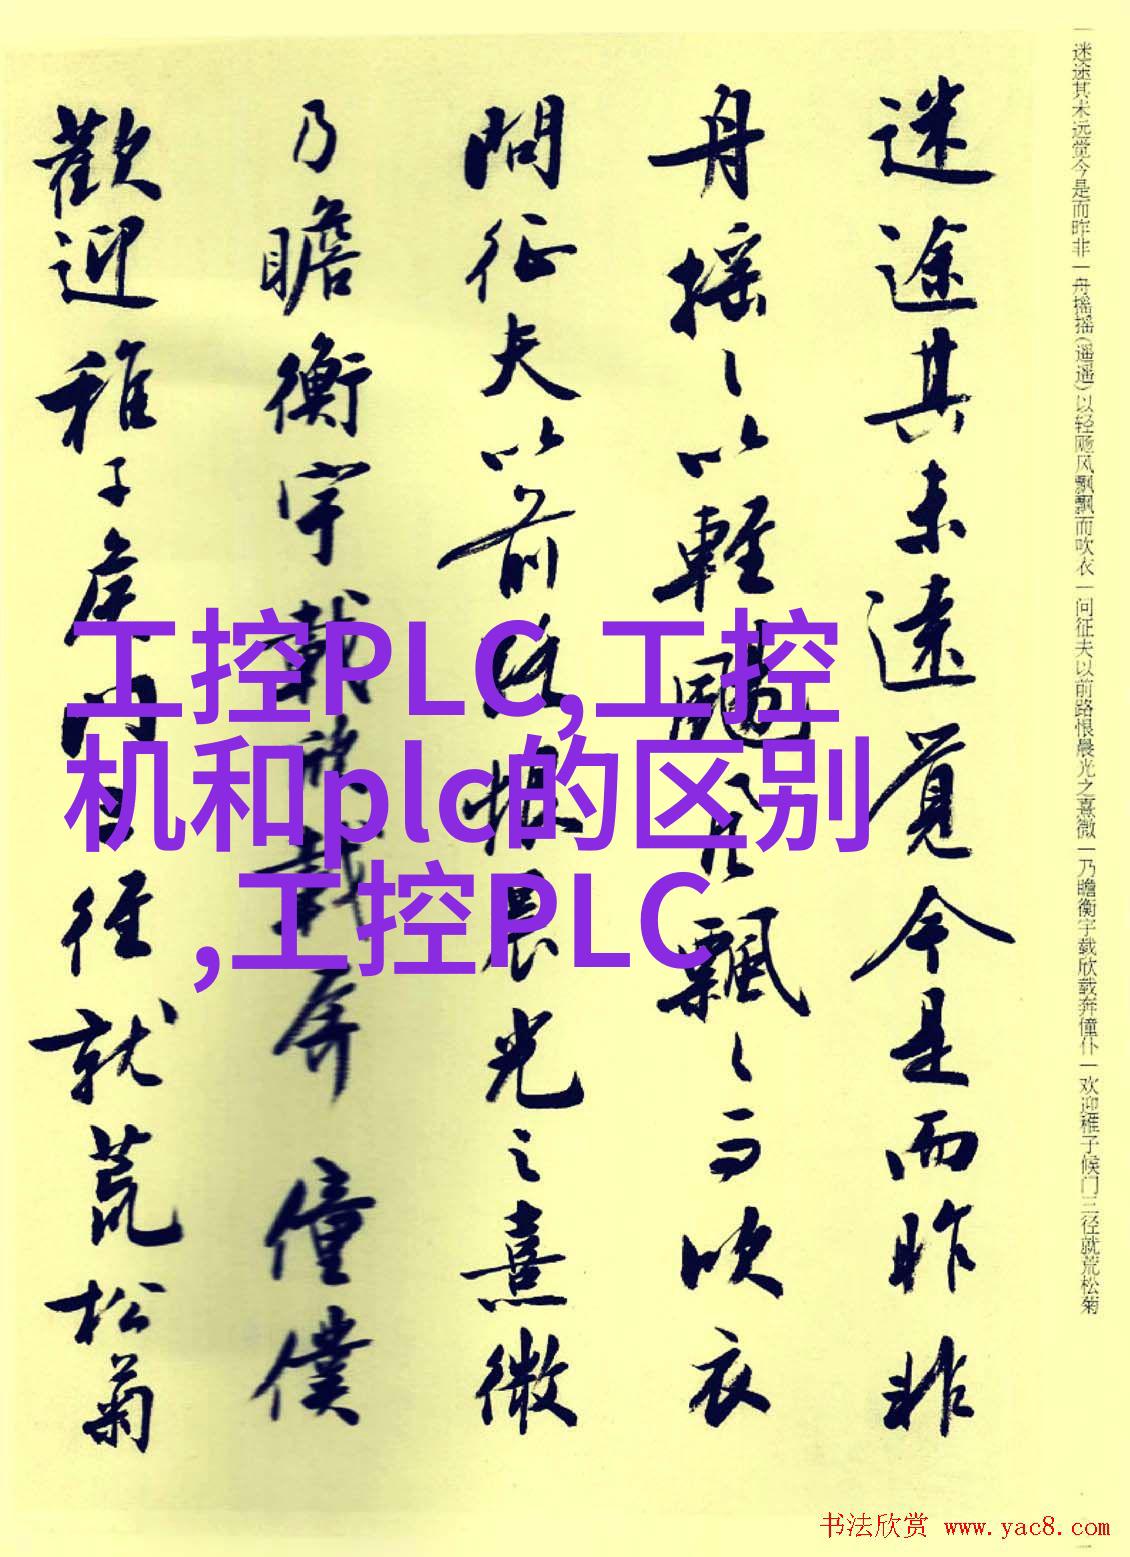 一迷途其未远觉今是而昨非一舟摇摇(遥遥)以轻飏风飘飘而吹衣一问征夫以前路恨晨光之熹微一乃瞻衡宇载欣载奔僮仆一欢迎稚子候门三径就荒松菊
迷途其未遠覺今是而昨非
舟摇〻以輕颺風飄〻而吹衣
問征夫以前路恨晨光之熹微
乃瞻衡宇載欣載奔僮僕
歡迎稚子候門三徑就荒松菊
工控PLC,工控
机和plc的区别
,工控PLC
书法欣赏 www.yac8.com